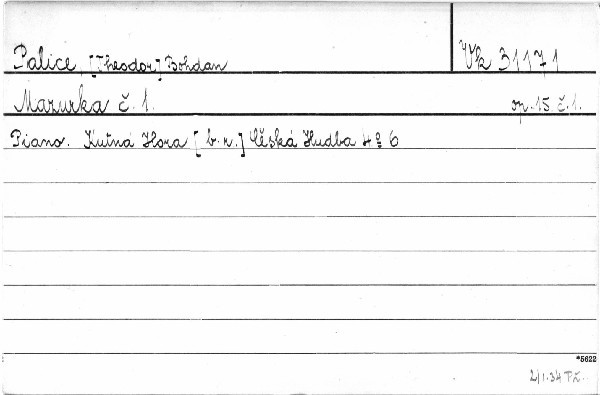 Palice, [Theodor] Bohdan
Vk 31171
Mazurka č. 1.
op. 15 č. 1.
Piano. Kutná Hora [b. r.] Česká Hudba 4º 6
*5622
2/1.34 Tz.